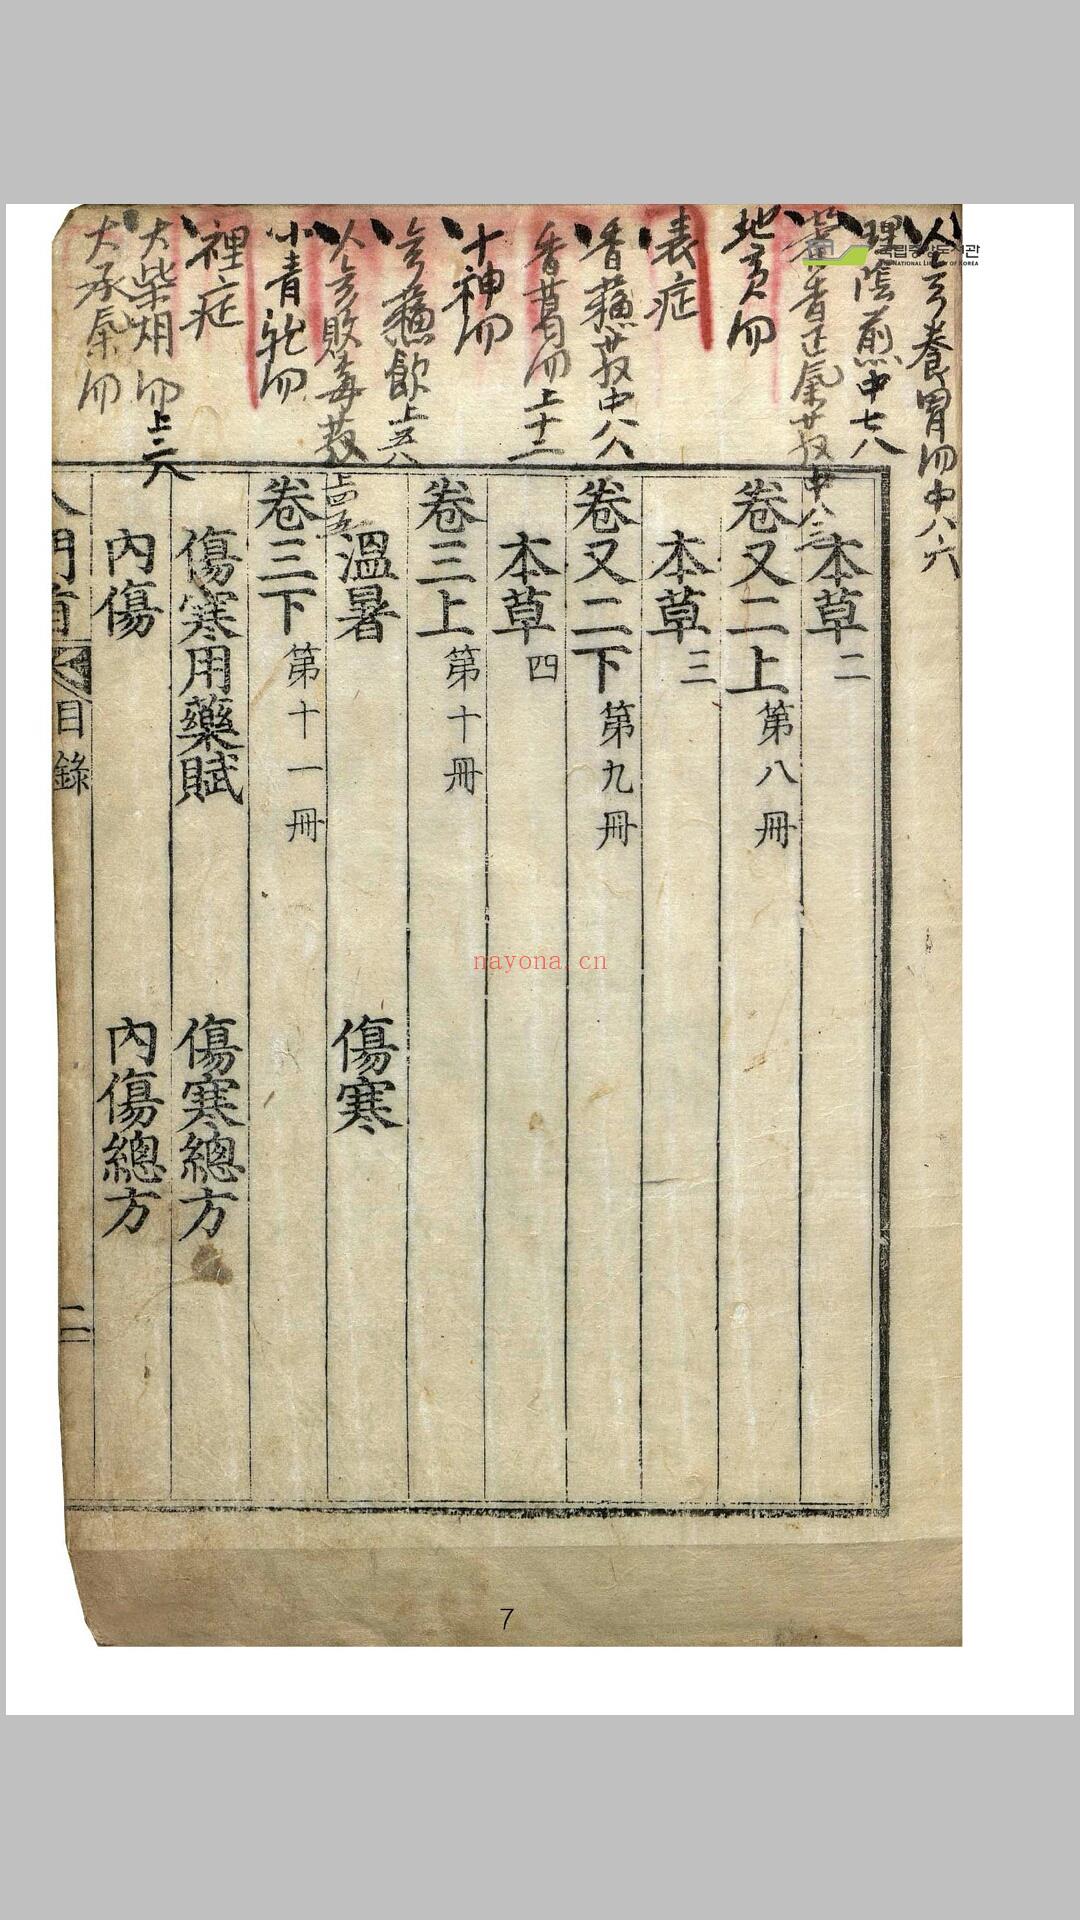 養胃
中八六
理陰煎中七八
藿香正氣散中八三
地黃
表症
香蘇散中八八
香葛
上十二
十神
蘇飲上五八
敗毒散上四五
小青龍
裡症
大柴胡
上二八
大承氣
국립중앙도서관
THE NATIONAL LIBRARY OF KOREA
本草二
卷又二上第八冊
本草三
卷又二下第九冊
本草四
卷三上第十冊
溫暑 傷寒
卷三下第十一冊
傷寒用藥賦 傷寒總方
內傷 內傷總方
門首 目錄 二
nayona.cn
7